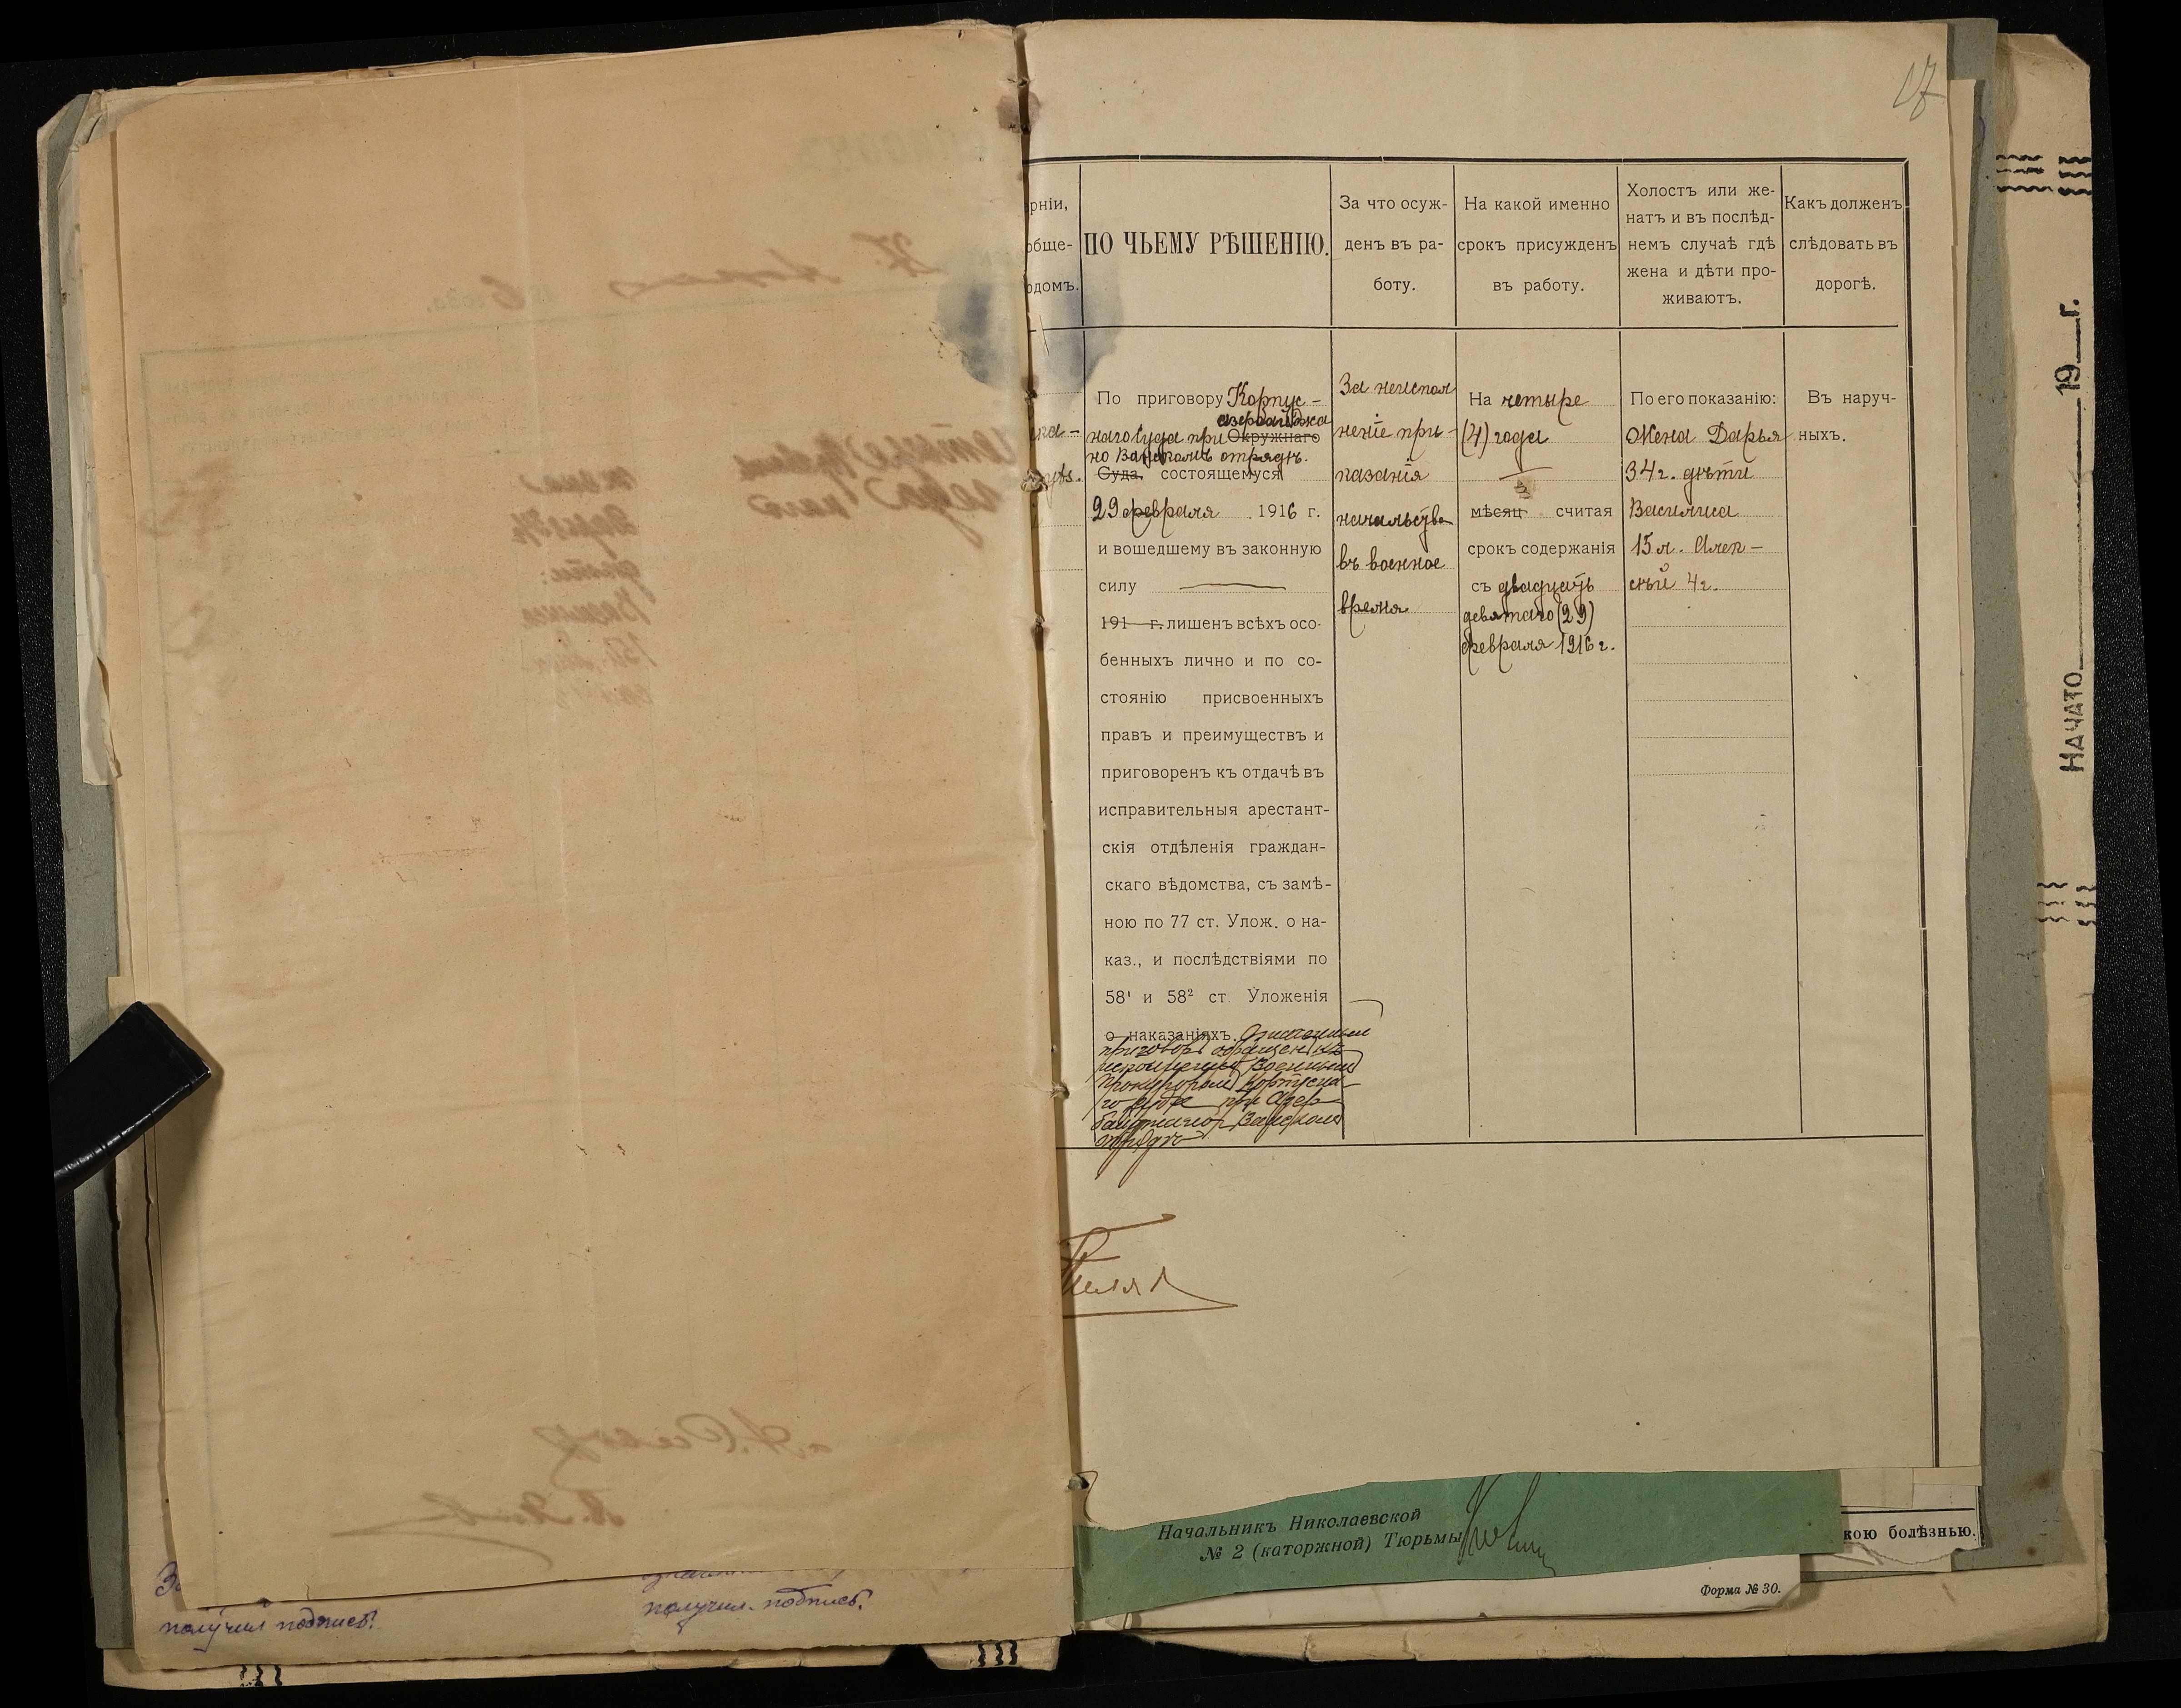 17
рніи,
обще-
одомъ.
ПО ЧЬЕМУ РѢШЕНІЮ.
За что осуж-
денъ въ ра-
боту.
На какой именно
срокъ присужденъ
въ работу.
Холостъ или же-
натъ и въ послѣд-
немъ случаѣ гдѣ
жена и дѣти про-
живаютъ.
Какъ долженъ
слѣдовать въ
дорогѣ.
По приговору Корпус-
азербайджа
наго Суда при Окружнаго
но Ванскомъ отрядѣ.
Суда, состоящемуся
29 февраля 1916 г.
и вошедшему въ законную
силу
191 г. лишенъ всѣхъ осо-
бенныхъ лично и по со-
стоянію присвоенныхъ
правъ и преимуществъ и
приговоренъ къ отдачѣ въ
исправительныя арестант-
скія отдѣленія граждан-
скаго вѣдомства, съ замѣ-
ною по 77 ст. Улож. о на-
каз., и послѣдствіями по
58¹ и 58² ст. Уложенія
о наказаніяхъ. Означенный
приговоръ обращенъ къ
исполненію Военнымъ
Прокуроромъ Корпусна-
го суда при Азер-
байджано-Ванскомъ
отрядѣ
За неиспол
неніе при-
казанія
начальства
въ военное
время
На четыре
(4) года
мѣсяц считая
срокъ содержанія
съ двадцать
девятаго (29)
февраля 1916 г.
По его показанію:
Жена Дарья
34 г. дѣти
Василиса
15 л. Алек-
сѣй 4 г.
Въ наруч-
ныхъ.
Начальникъ Николаевской
№ 2 (каторжной) Тюрьмы
кою болѣзнью.
Форма № 30.
получил подпись.
получил подпись.
НАЧАТО 19 г.